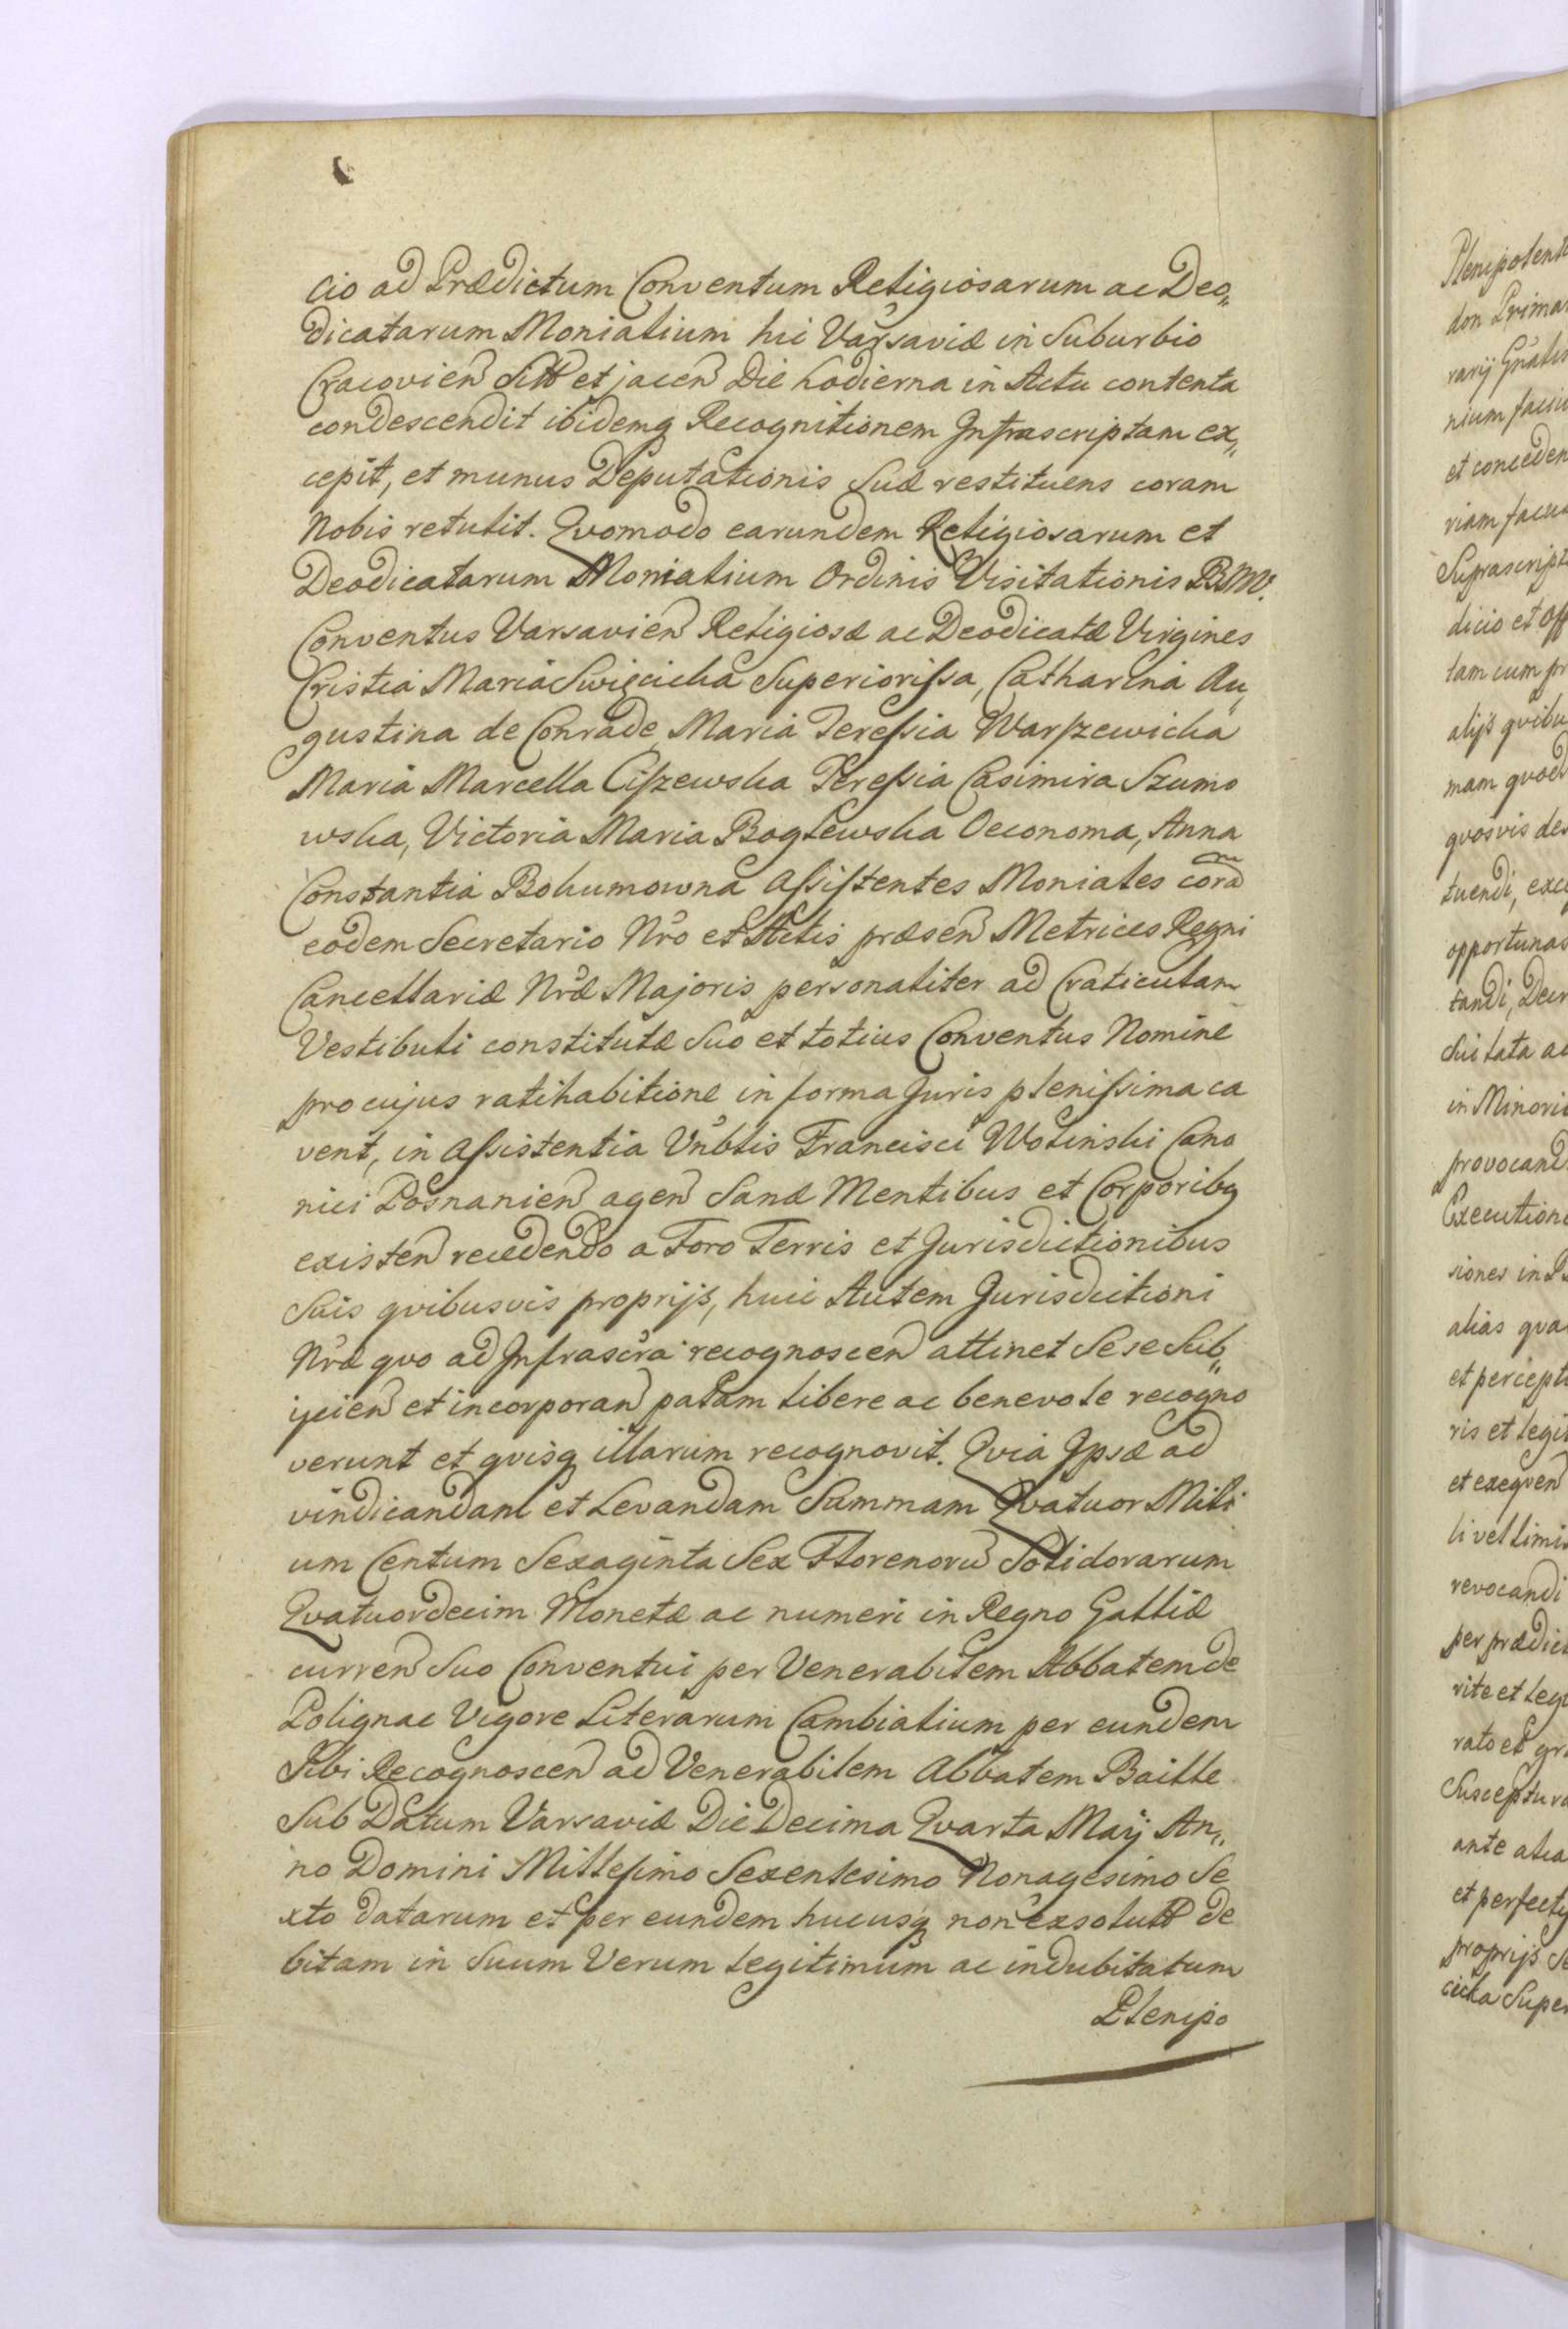 cio ad Prædictum Conventum Religiosarum ac Deo„
dicatarum Monialium hic Varsaviæ in Suburbio
Cracovien Sitt et jacen Die hodierna in Actu contenta
condescendit ibidemq Recognitionem Infrascriptam ex„
cepit, et munus Deputationis Suæ restituens coram
Nobis retulit. Qvomodo earundem Religiosarum et
Deodicatarum Monialium Ordinis Visitationis B.M.V.
Conventus Varsavien Religiosæ ac Deodicatæ Virgines
Cristia Maria Swięcicka Superiorissa, Catharina Au„
gustina de Conrade, Maria Teressia Warszewicka
Maria Marcella Ciszewska Teressia Casimira Szumo
wska, Victoria Maria Boglewska Oeconoma, Anna
Constantia Bohumowna Assistentes Moniales corā
eodem Secretario Nro et Actis præsen Metrices Regni
Cancellariæ Nræ Majoris personaliter ad Craticulam
Vestibuli constitutæ Suo et totius Conventus Nomine
pro cujus ratihabitione in forma Juris plenissima ca
vent, in Assistentia Vnblis Francisci Wolinski Cano
nici Posnanien agen Sanæ Mentibus et Corporibq
existen recedendo a Foro Terris et Jurisdictionibus
Suis qvibusvis proprijs, huic Autem Jurisdictioni
Nræ qvo ad Infrascra recognoscen attinet Sese Sub„
ijcien et incorporan palam libere ac benevole recogno
verunt et qvisq illarum recognovit. Qvia Ipsæ ad
vindicandam et Levandam Summam Qvatuor Mili
um Centum Sexaginta Sex Florenorū Solidorarum
Qvatuordecim Monetæ ac numeri in Regno Galliæ
curren Suo Conventui per Venerabilem Abbatem de
Polignac Vigore Literarum Cambialium per eundem
Sibi Recognoscen ad Venerabilem Abbatem Baille
Sub Datum Varsaviæ Die Decima Qvarta Maij An„
no Domini Millesimo Sexentesimo Nonagesimo Se
xto datarum et per eundem hucusq non exsolutt de
bitam in Suum Verum legitimum ac indubitatum
Plenipo
Plenipotent
don Prima
rarij Gnalis
nium facu
et conceden
riam facu
Suprascript
dicio et Off
tam cum pr
alijs qvibu
mam qvod
qvosvis de
tuendi, exc
opportunas
tandi, Decr
Sui lata a
in Minori
provocand
Execution
siones in P
alias qva
et percept
ris et legi
et exeqven
li vel limi
revocandi
per prædic
rite et leg
rato et gr
Susceptur
ante alia
et perfect
proprijs Se
cicka Super